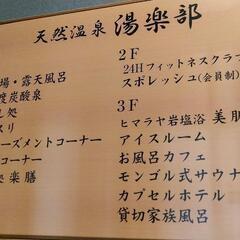 天然温泉 湯楽部
場・露天風呂
度炭酸泉
処
スリ
ーズメントコーナー
コーナー
処 楽膳
2F
24Hフィットネスクラブ
スポレッシュ(会員制)
3F
ヒマラヤ岩塩浴 美肌
アイスルーム
お風呂カフェ
モンゴル式サウナ
カプセルホテル
貸切家族風呂